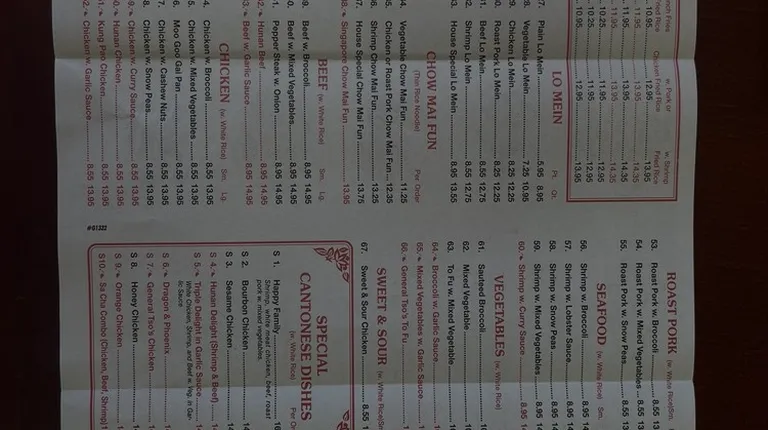 w. Pork or w. Shrimp
Fried Rice Chicken Fried Rice Fried Rice
10.95 12.95 13.95
11.95 13.95 14.35
11.95 13.95 14.35
10.25 11.95 12.95
10.25 11.95 12.95
10.95 12.95 13.95
LO MEIN Pt. Qt.
27. Plain Lo Mein 5.95 8.95
28. Vegetable Lo Mein 7.25 10.95
29. Chicken Lo Mein 8.25 12.25
Roast Pork Lo Mein 8.25 12.25
Beef Lo Mein 8.55 12.75
Shrimp Lo Mein 8.55 12.75
House Special Lo Mein 8.95 13.55
CHOW MAI FUN
(Thin Rice Noodle) Per Order
Vegetable Chow Mai Fun 11.25
Chicken or Roast Pork Chow Mai Fun 12.35
Shrimp Chow Mai Fun 13.25
House Special Chow Mai Fun 13.75
Singapore Chow Mai Fun 13.95
BEEF (w. White Rice) Sm. Lg.
Beef w. Broccoli 8.95 14.95
Beef w. Mixed Vegetables 8.95 14.95
Pepper Steak w. Onion 8.95 14.95
Hunan Beef 8.95 14.95
Beef w. Garlic Sauce 8.95 14.95
CHICKEN (w. White Rice) Sm. Lg.
Chicken w. Broccoli 8.55 13.95
Chicken w. Mixed Vegetables 8.55 13.95
Moo Goo Gai Pan 8.55 13.95
Chicken w. Cashew Nuts 8.55 13.95
Chicken w. Snow Peas 8.55 13.95
Chicken w. Curry Sauce 8.55 13.95
Hunan Chicken 8.55 13.95
Kung Pao Chicken 8.55 13.95
Chicken w. Garlic Sauce 8.55 13.95
#G1322
ROAST PORK (w. White Rice) Sm.
53. Roast Pork w. Broccoli 8.55
54. Roast Pork w. Mixed Vegetables 8.55
55. Roast Pork w. Snow Peas 8.55
SEAFOOD (w. White Rice) Sm.
56. Shrimp w. Broccoli 8.95
57. Shrimp w. Lobster Sauce 8.95
58. Shrimp w. Snow Peas 8.95
59. Shrimp w. Mixed Vegetables 8.95
60. Shrimp w. Curry Sauce 8.95
VEGETABLES (w. White Rice)
61. Sauteed Broccoli
62. Mixed Vegetable
63. To Fu w. Mixed Vegetable
64. Broccoli w. Garlic Sauce
65. Mixed Vegetables w. Garlic Sauce
66. General Tso's To Fu
SWEET & SOUR (w. White Rice)
67. Sweet & Sour Chicken 8.55
SPECIAL
CANTONESE DISHES
(w. White Rice)
S 1. Happy Family
Shrimp, white meat chicken, beef, roast
pork w. mixed vegetables
S 2. Bourbon Chicken
S 3. Sesame Chicken
S 4. Hunan Delight (Shrimp & Beef)
S 5. Triple Delight in Garlic Sauce
White Chicken, Shrimp, and Beef w. Veg. in Gar-
lic Sauce
S 6. Dragon & Phoenix
S 7. General Tso's Chicken
S 8. Honey Chicken
S 9. Orange Chicken
S10. Sa Cha Combo (Chicken, Beef, Shrimp)